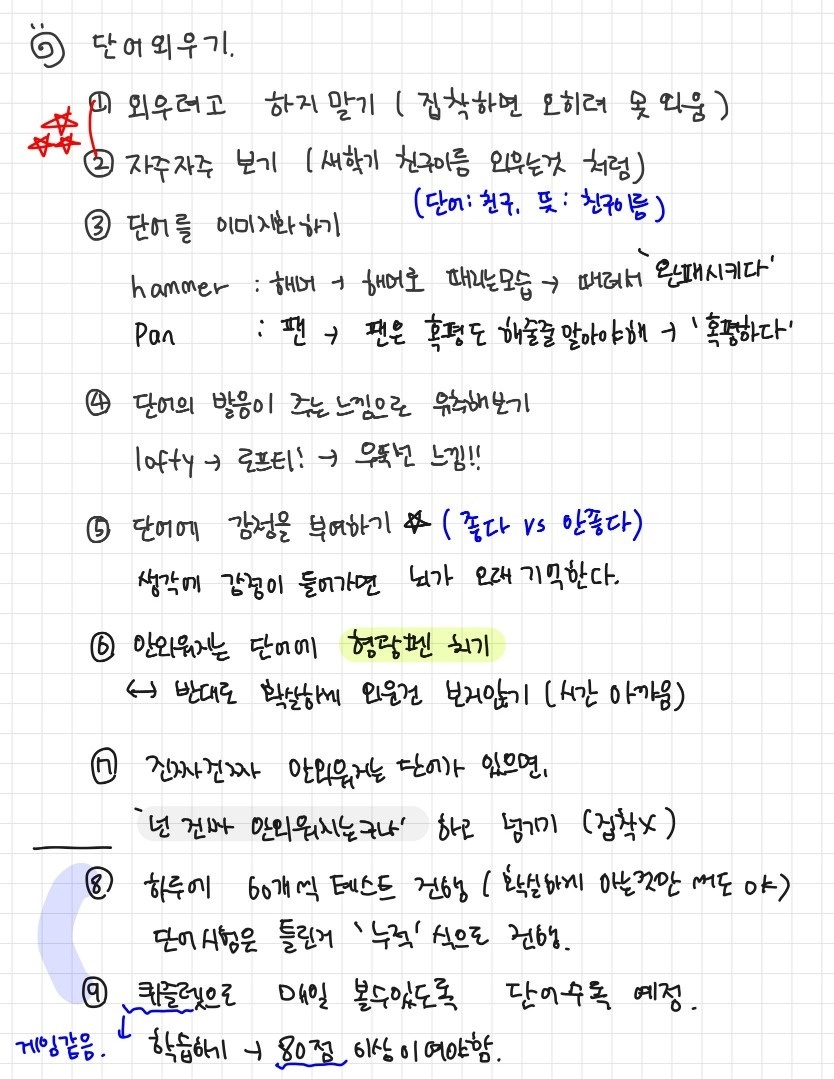 단어외우기.
① 외우려고 하지 말기 (집착하면 오히려 못 외움)
② 자주자주 보기 (새학기 친구이름 외우는것 처럼)
(단어: 친구, 뜻: 친구이름)
③ 단어를 이미지화하기
hammer : 해머 → 해머로 때리는모습 → 때려서 '완패시키다'
Pan : 팬 → 팬은 혹평도 해줄줄 알아야해 → '혹평하다'
④ 단어의 발음이 주는느낌으로 유추해보기
lofty → 로프티! → 우뚝선 느낌!!
⑤ 단어에 감정을 부여하기 ☆ (좋다 vs 안좋다)
생각에 감정이 들어가면 뇌가 오래 기억한다.
⑥ 안외워지는 단어에 형광펜 치기
↔ 반대로 확실하게 외운건 보지않기 (시간 아까움)
⑦ 진짜진짜 안외워지는 단어가 있으면,
'넌 진짜 안외워지는구나' 하고 넘기기 (집착X)
⑧ 하루에 60개씩 테스트 진행 (확실하게 아는것만 써도 OK)
단어시험은 틀린거 '누적' 식으로 진행.
⑨ 퀴즐렛으로 매일 볼수있도록 단어수록 예정.
게임같음. ↓ 학습하기 → 80점 이상이여야함.